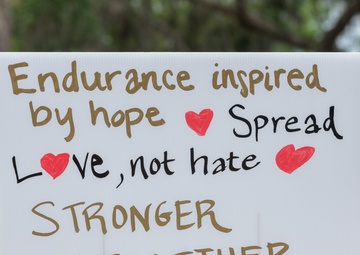 Endurance inspired
by hope ♥ Spread
L♥ve, not hate ♥
STRONGER